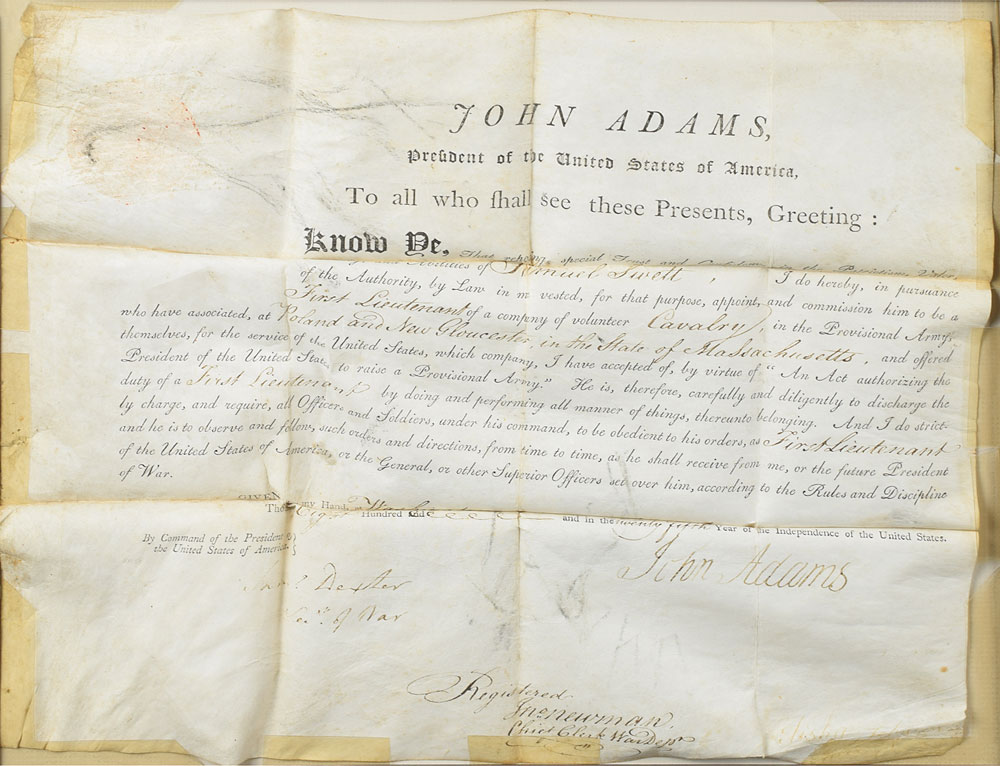 JOHN ADAMS,
Preſident of the United States of America,
To all who ſhall see these Presents, Greeting:
Know Ye, That reposing special Trust and
Abilities of Samuel Swett, I do hereby, in pursuance
of the Authority, by Law in me vested, for that purpose, appoint, and commission him to be a
First Lieutenant of a company of volunteer Cavalry, in the Provisional Army,
who have associated, at Poland and New Gloucester, in the State of Massachusetts, and offered
themselves, for the service of the United States, which company, I have accepted of, by virtue of "An Act authorizing the
President of the United States, to raise a Provisional Army." He is, therefore, carefully and diligently to discharge the
duty of a First Lieutenant by doing and performing all manner of things, thereunto belonging. And I do strict-
ly charge, and require, all Officers and Soldiers, under his command, to be obedient to his orders, as First Lieutenant
and he is to observe and follow, such orders and directions, from time to time, as he shall receive from me, or the future President
of the United States of America, or the General, or other Superior Officers set over him, according to the Rules and Discipline
of War.
GIVEN my Hand,
Hundred and in the twenty fifth Year of the Independence of the United States.
By Command of the President of
the United States of America.
John Adams
Dexter
of War
Registered
Jno. Newman.
Chief Clerk War Dept